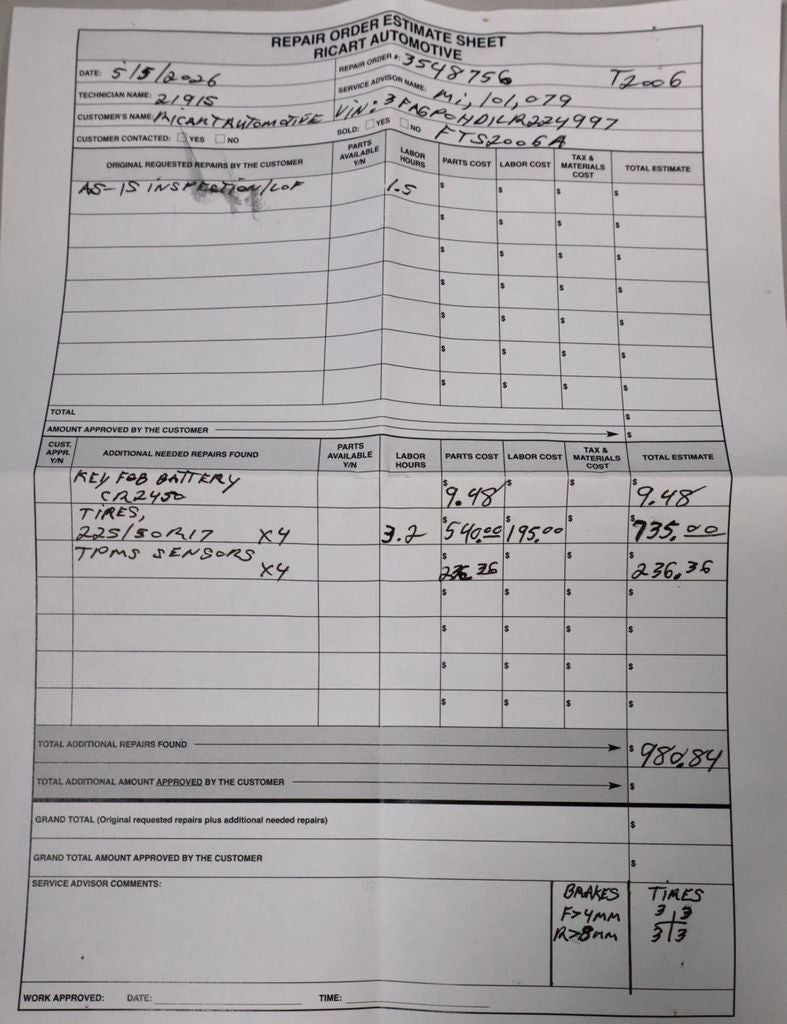 REPAIR ORDER ESTIMATE SHEET
RICART AUTOMOTIVE
DATE: 5/5/2026 REPAIR ORDER #: 3548756 T2006
TECHNICIAN NAME: 21915 SERVICE ADVISOR NAME: Mi, 101,079
CUSTOMER'S NAME: RICART AUTOMOTIVE VIN: 3FA6P0HD1LR224997
CUSTOMER CONTACTED: YES NO SOLD: YES NO FTS2006A
ORIGINAL REQUESTED REPAIRS BY THE CUSTOMER PARTS AVAILABLE Y/N LABOR HOURS PARTS COST LABOR COST TAX & MATERIALS COST TOTAL ESTIMATE
AS-IS INSPECTION/LOF 1.5 $ $ $ $
$ $ $ $
$ $ $ $
$ $ $ $
$ $ $ $
$ $ $ $
$ $ $ $
TOTAL $
AMOUNT APPROVED BY THE CUSTOMER $
CUST. APPR. Y/N ADDITIONAL NEEDED REPAIRS FOUND PARTS AVAILABLE Y/N LABOR HOURS PARTS COST LABOR COST TAX & MATERIALS COST TOTAL ESTIMATE
KEY FOB BATTERY
CR2450 $9.48 $ $ $9.48
TIRES,
225/50R17 X4 3.2 $540.00 $195.00 $ $735.00
TPMS SENSORS
X4 $236.36 $ $ $236.36
$ $ $ $
$ $ $ $
$ $ $ $
$ $ $ $
TOTAL ADDITIONAL REPAIRS FOUND $980.84
TOTAL ADDITIONAL AMOUNT APPROVED BY THE CUSTOMER $
GRAND TOTAL (Original requested repairs plus additional needed repairs) $
GRAND TOTAL AMOUNT APPROVED BY THE CUSTOMER $
SERVICE ADVISOR COMMENTS:
BRAKES TIRES
F>4MM 3 3
R>8MM 3 3
WORK APPROVED: DATE: TIME: